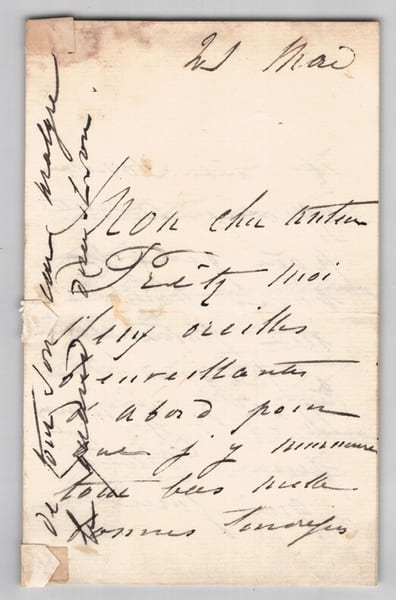 21 Mai
Mon cher auteur
Prêtez moi
deux oreilles
bienveillantes
d'abord pour
que j'y murmure
tout bas mille
bonnes tendresses
de tout son cœur malgré